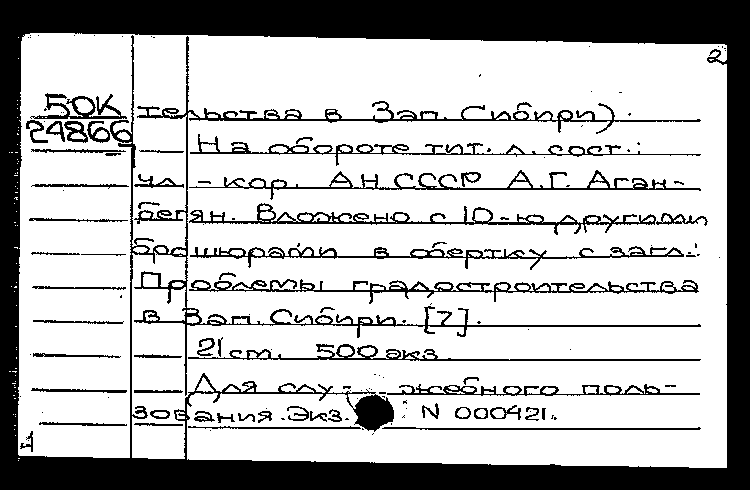 2
50К тельства в Зап. Сибири).
24866 На обороте тит. л. сост.:
чл.-кор. АН СССР А.Г. Аган-
бегян. Вложено с 10-ю другими
брошюрами в обертку с загл.:
Проблемы градостроительства
в Зап. Сибири. [7].
21 см. 500 экз.
Для слу- жебного поль-
зования. Экз. N 000421.